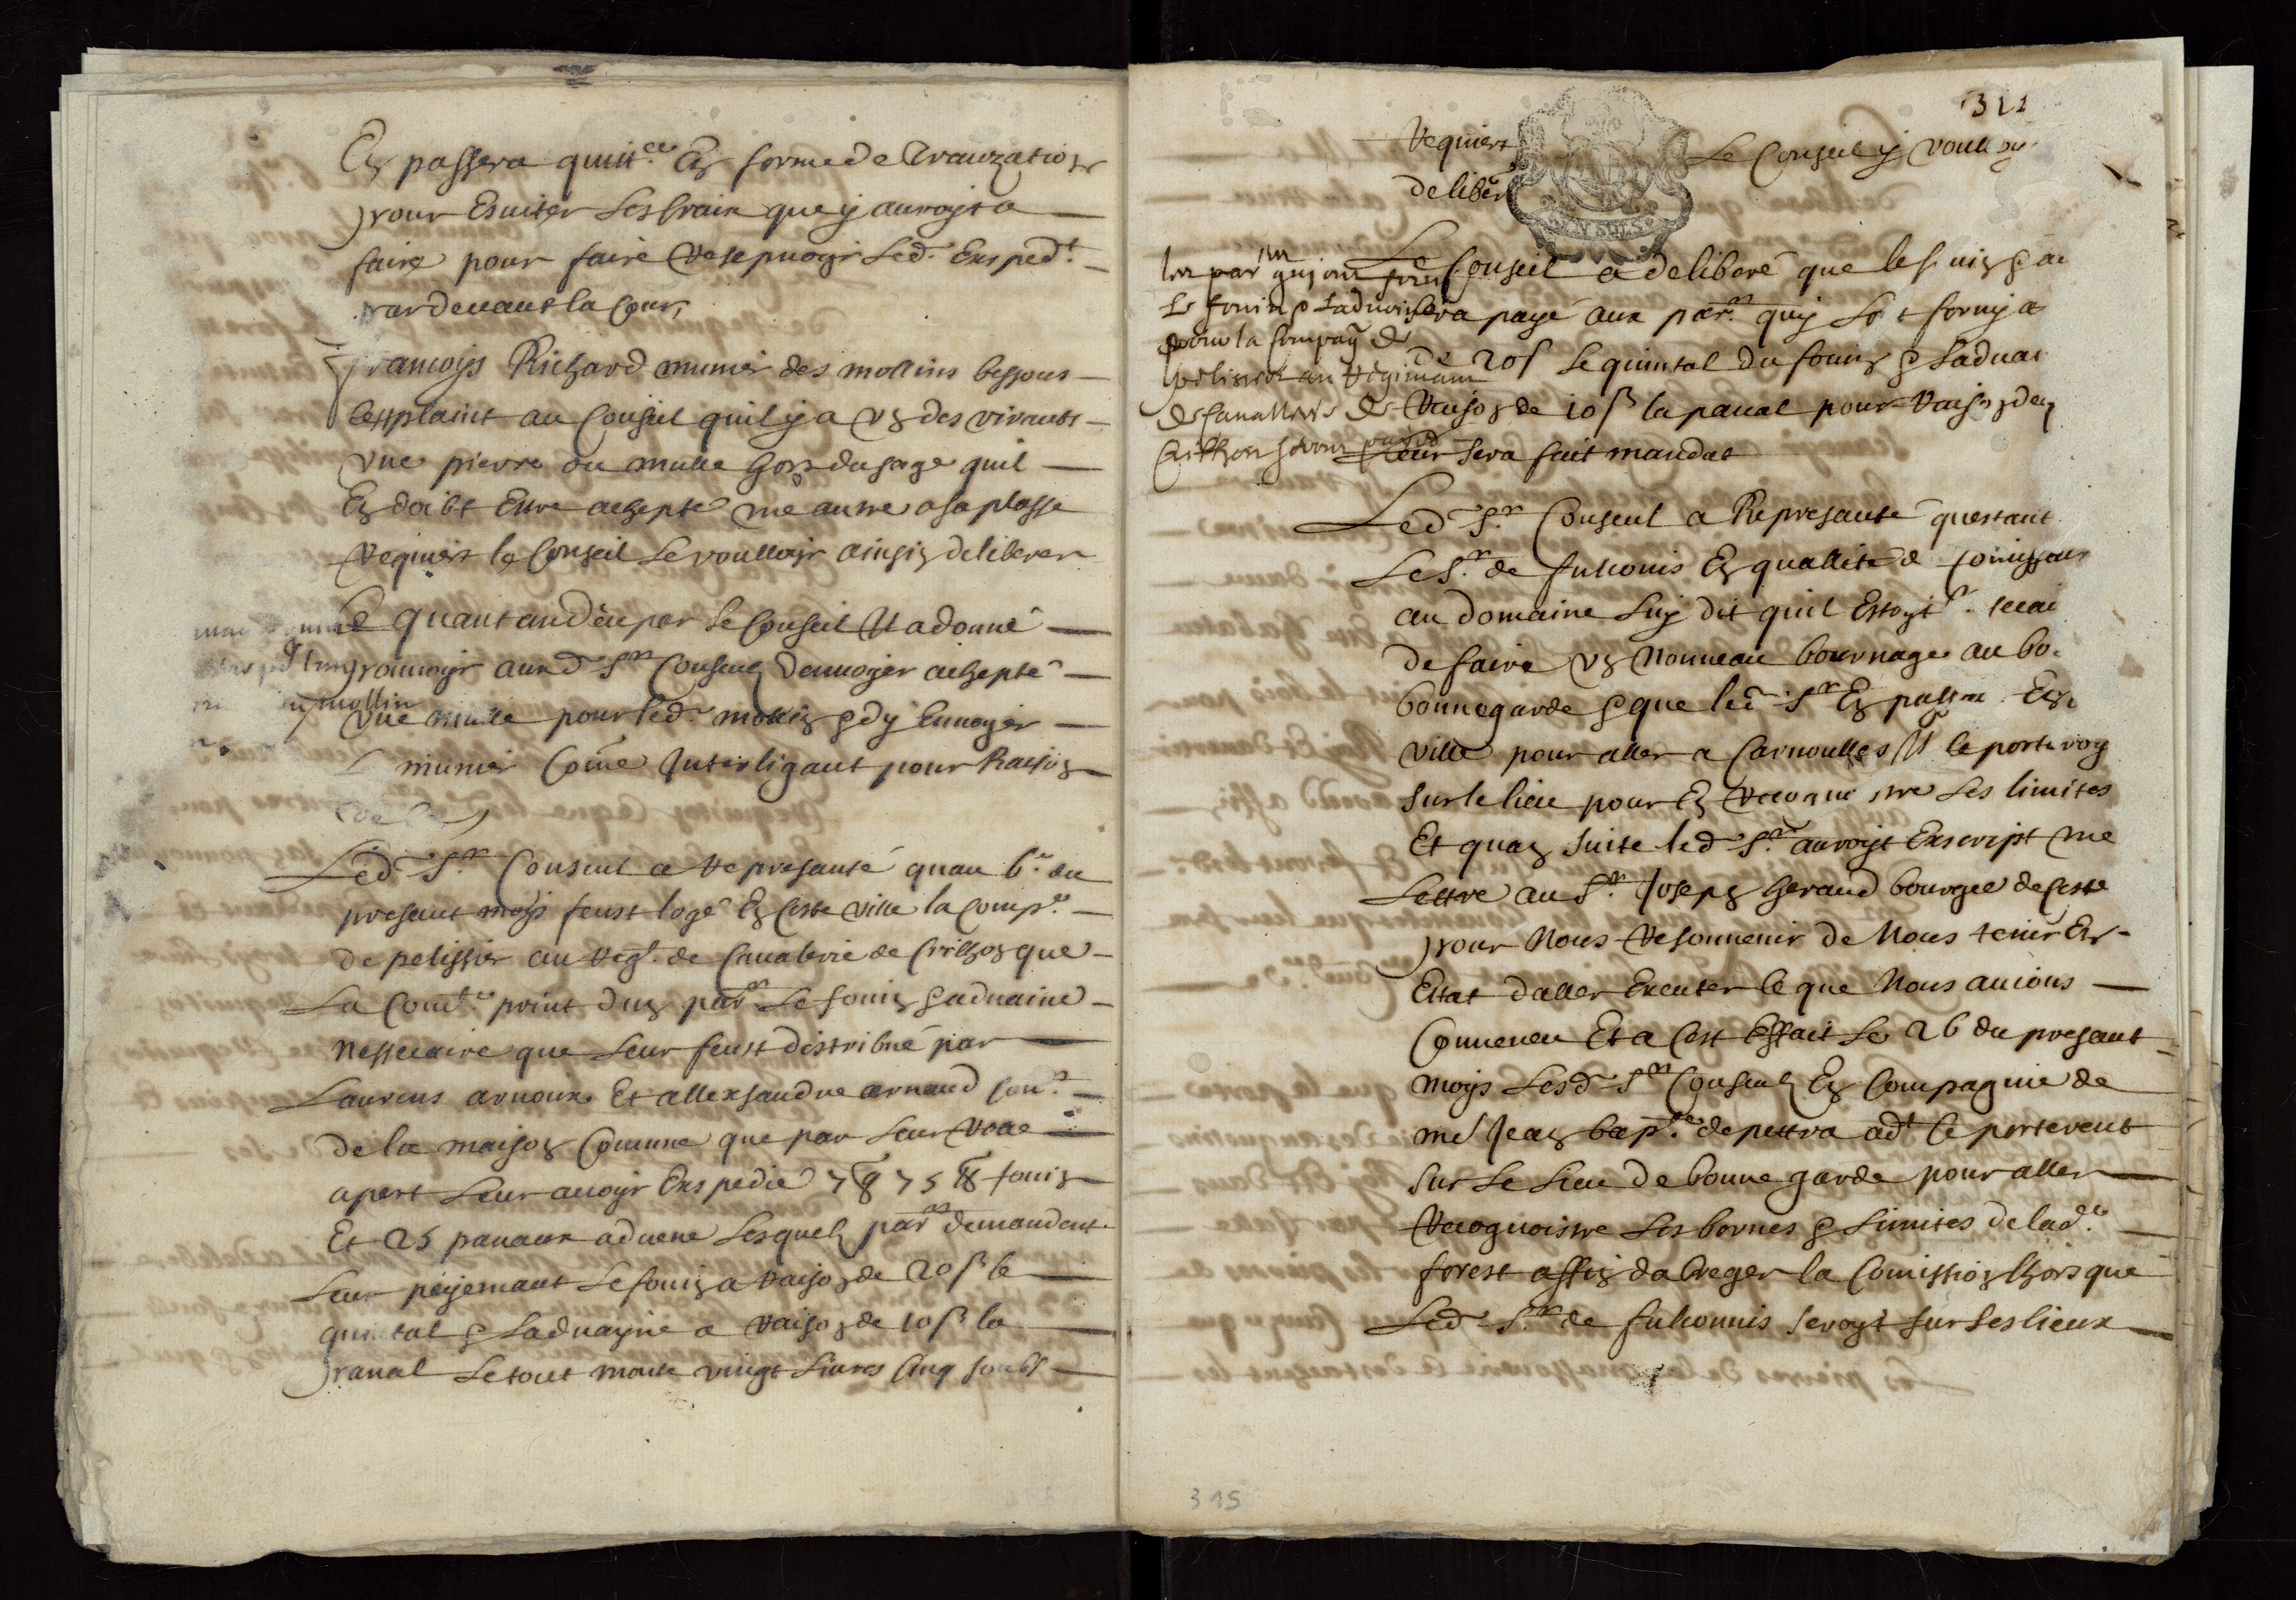 En passera quitt.ce En forme de tranzation
pour Esuiter Les fraix que y auroyt a
faire pour faire Resepuoyr Led. Exsped.t
par deuant la Cour,
francoys Richard munier des mollins bessons
cest plaint au Conseil quil y a vn des virants
vne pierre ou mulle hors dusage quil
En doibt Estre achepté vne autre a sa plasse
requiert le Conseil Le voulloyr ainsin deliberer
Ce quantandeu par le Conseil Il a donné
pouuoyr aux d. S.rs Conseulz denuoyer achepté
mollin
vne mulle pour led. mollin & dy Enuoyer
munier Come Inteligant pour Raison
de ce
Led. S.r Conseul a represanté quau 6.e du
presant moys feust logé En Ceste ville la Comp.e
de pelissier au reg.t de Caualerie de Crilhon que
La Com.té print dun par.ers Le fouin & aduaine
nessecaire que Leur feust distribué par
Laurens arnoux Et allexsandre arnaud
de la maison Comune que par Leur
apert Leur auoyr Exspedié 7 q 75 ll fouin
Et 25 panaux aduene Lesquelz par.ers demandent
Leur peyemant Le fouin a raison de 20 s le
quintal & Laduayne a raison de 10 s la
panal Le tout monte vingt Liures Cinq soubs
311
requiert Le Conseil y voulloyr
deliber
Les par.ers quy ont forny
Le fouin & Laduaine
pour la Compag. de
pelissier au regimant
de Cauallerie de
Crilhon seront payés
Le Conseil a deliberé que le fouin &
sera payé aux par.ers quy Lont forny a
de 20 s Le quintal du fouin & Laduai
raison de 10 s la panal pour raison de q
Leur sera fait mandat
Led. S.r Conseul a Represanté questant
Le S.r de fulconis En quallité de Comissaire
au domaine Luy dit quil Estoyt
de faire vn nouueau bournage au bo
bonnegarde & que led. S.r En passan En
ville pour aller a Carnoulles Il ce porteroy
sur le lieu pour En recognoistre Les limites
Et quan suite led. S.r auroyt Exscript vne
Lettre au S.r Joseph Geraud bourgeo de Ceste
pour Nous resouuenir de Nous tenir En
Estat daller Executer Ce que Nous auions
Conueneu Et a Cest Effait Le 26 du presant
moys Lesd. S.rs Conseulz En Compagnie de
me Jean bap.te de pettra ad.t Ce porterent
sur Le Lieu de bonne garde pour aller
Recognoistre Les bornes & Limites de lad.e
forest affin dabreger la Comission Lhors que
Led. S.r de fulconnis seroyt sur Les lieux
315